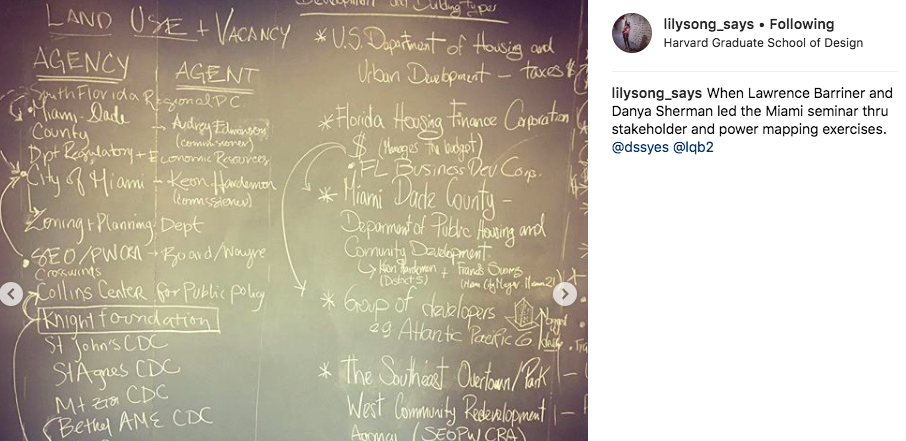 LAND USE + VACANCY
AGENCY
AGENT
South Florida Regional P.C.
Miami-Dade
County
→ Audrey Edmonson
(commissioner)
Dpt Regulatory + Economic Resources
City of Miami – Keon Hardemon
(commissioner)
Zoning + Planning Dept
SEO/PWCRA → Board/Wayne
Crosswings
Collins Center for Public policy
Knight foundation
St John's CDC
St Agnes CDC
Mt Zion CDC
Bethel AME CDC
Development and Building types
* U.S. Department of Housing and
Urban Development – taxes $
* Florida Housing Finance Corporation
$ (Manages the budget)
FL Business Dev Corp.
* Miami Dade County –
Department of Public Housing and
Community Development
Keon Hardemon + Francis Suarez
(District 5)
* Group of developers
e.g Atlantic Pacific
* The Southeast Overtown/Park
West Community Redevelopment
Agency (SEOPW CRA)
lilysong_says • Following
Harvard Graduate School of Design
lilysong_says When Lawrence Barriner and
Danya Sherman led the Miami seminar thru
stakeholder and power mapping exercises.
@dssyes @lqb2